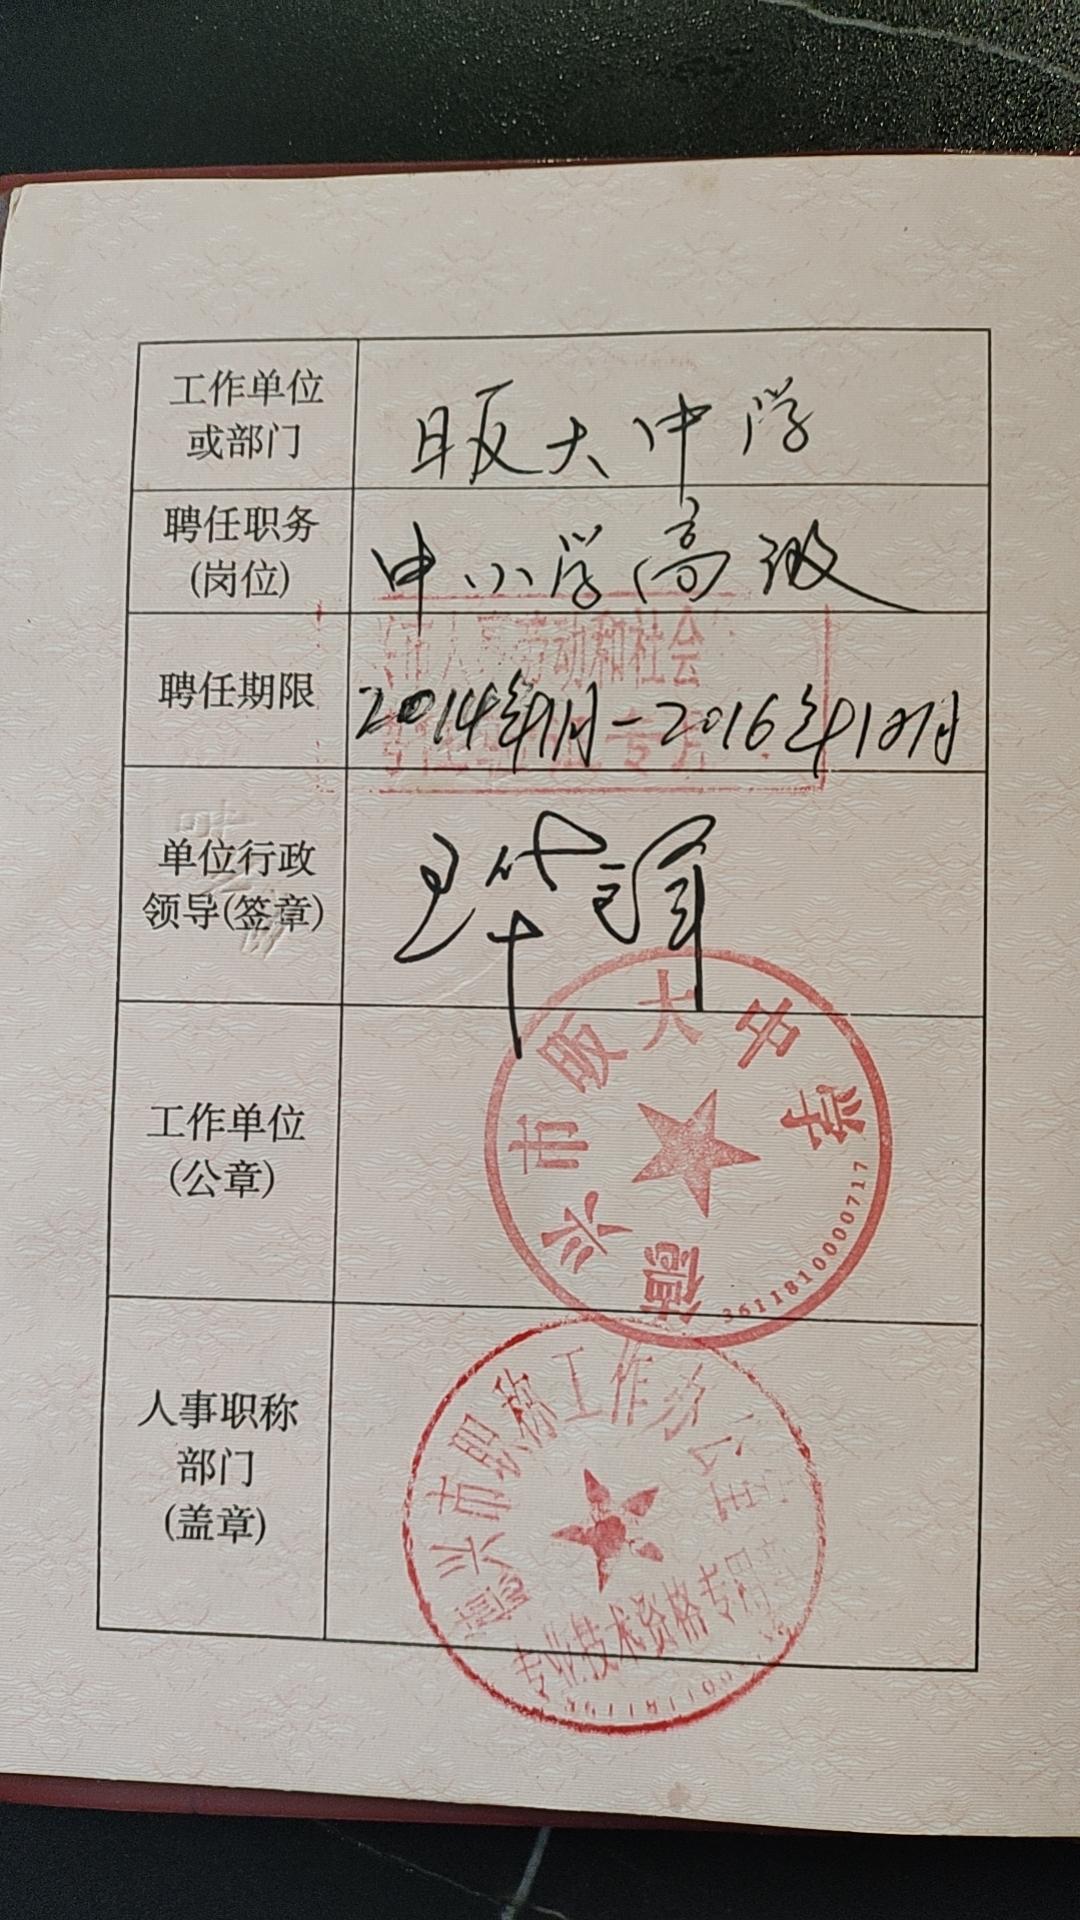 工作单位
或部门
昄大中学
聘任职务
(岗位)
中小学高级
市人 劳动和社会
聘任期限
2014年9月-2016年12月
专
单位行政
领导(签章)
工作单位
(公章)
德兴市昄大中学
3611810000717
人事职称
部门
(盖章)
德兴市职称工作办公室
专业技术资格专用章